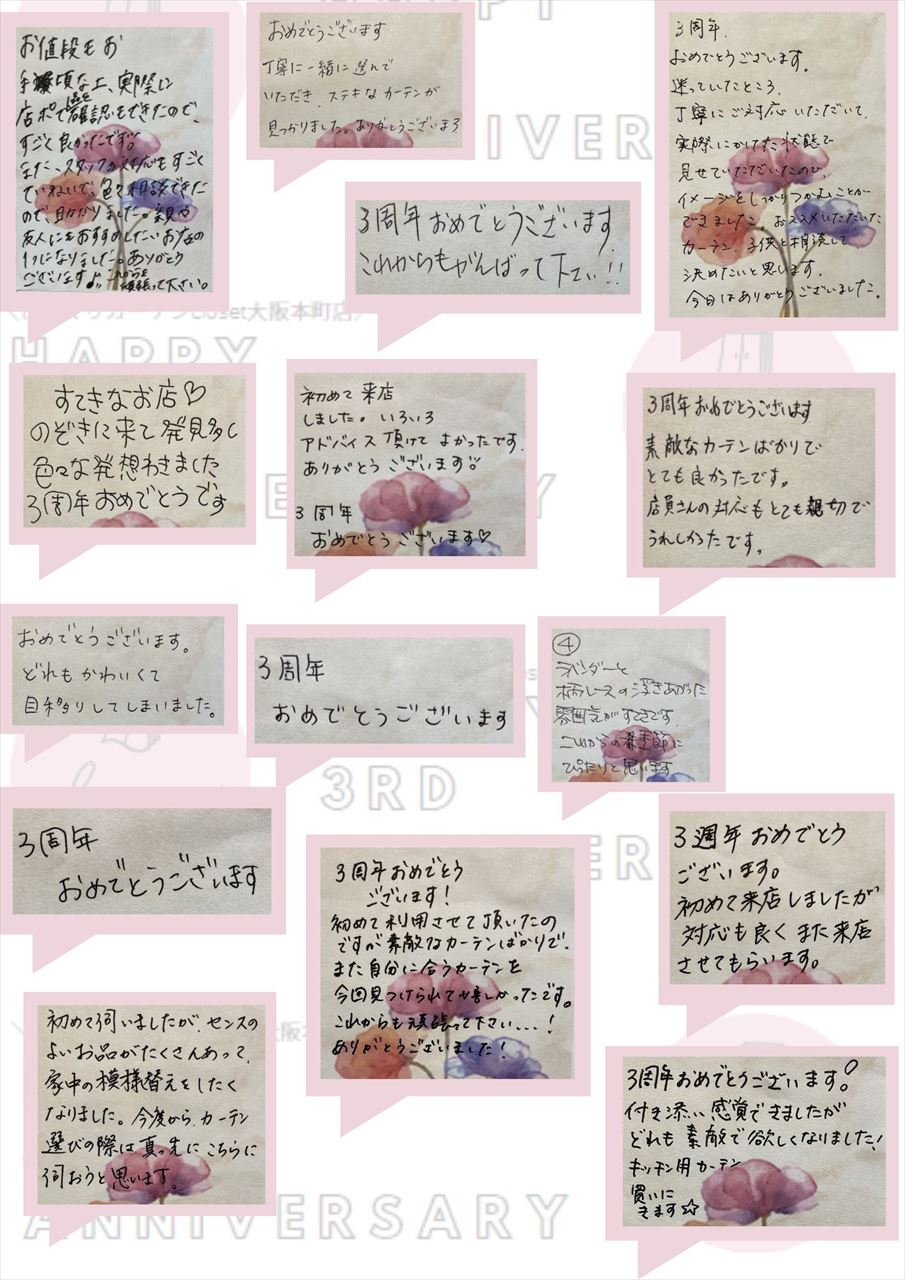 お値段もお
手頃な上、実際に
店ポで品を確認もできたので、
すごく良かったです。
また、スタッフの対応もすごく
ていねいで、色々相談できた
ので、助かりました。親や
友人にもおすすめしたいお店の
1つになりました。ありがとう
ございます♪ これからも
頑張って下さい。
おめでとうございます
丁寧に一緒に選んで
いただき、ステキなカーテンが
見つかりました。ありがとうございます
3周年、
おめでとうございます。
迷っていたところ、
丁寧にご対応いただいて、
実際にかけた状態で
見せていただいたので、
イメージをしっかりつかむことが
できました。おススメいただいた
カーテン、子供と相談して
決めたいと思います。
今日はありがとうございました。
3周年おめでとうございます
これからもがんばって下さい!!
closet大阪本町店
HAPPY
すてきなお店♡
のぞきに来て発見多し
色々な発想わきました
3周年おめでとうです
初めて来店
しました。いろいろ
アドバイス頂けてよかったです
ありがとうございます♡
3周年
おめでとうございます♡
3周年おめでとうございます
素敵なカーテンばかりで
とても良かったです。
店員さんの対応もとても親切で
うれしかったです。
おめでとうございます。
どれもかわいくて
目移りしてしまいました。
3周年
おめでとうございます
④
ラベンダーと
柄レースの浮きあがった
雰囲気がすてきです
これからの季節に
ぴったりと思います
3RD
3周年
おめでとうございます
3周年おめでとう
ございます!
初めて利用させて頂いたの
ですが素敵なカーテンばかりで、
また自分に合うカーテンを
今回見つけられて嬉しかったです。
これからも頑張って下さい...!
ありがとうございました!
3週年おめでとう
ございます。
初めて来店しましたが
対応も良くまた来店
させてもらいます。
初めて伺いましたが、センスの
よいお品がたくさんあって、
家中の模様替えをしたく
なりました。今度から、カーテン
選びの際は真っ先にこちらに
伺おうと思います。
3周年おめでとうございます!
付き添い感覚できましたが
どれも素敵で欲しくなりました!
キッチン用カーテン
買いに
きます☆
ANNIVERSARY